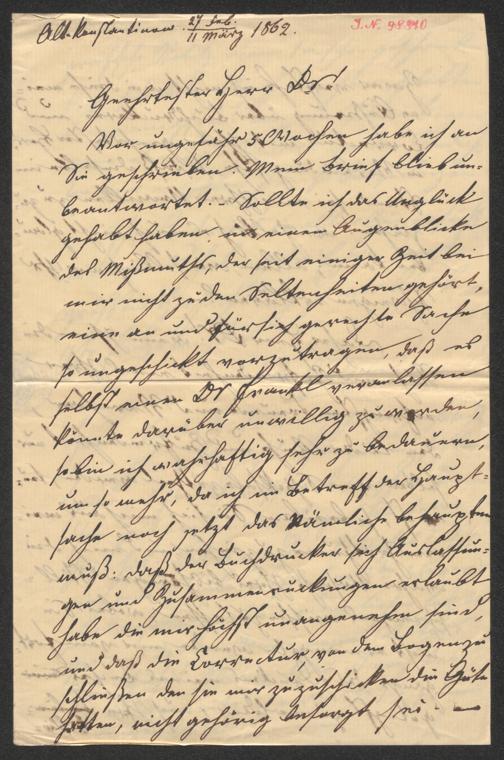 Alt-Konstantinow 27 Feb. / 11 März 1862.
J.N. 98910
Geehrtester Herr Dr!
Vor ungefähr 5 Wochen habe ich an
Sie geschrieben. Mein Brief blieb un-
beantwortet. – Sollte ich das Unglück
gehabt haben in einem Augenblicke
des Mißmuths, der seit einiger Zeit bei
mir nicht zu den Seltenheiten gehört,
eine an und für sich gerechte Sache
so ungeschickt vorzutragen, daß es
selbst einen Dr Frankl veranlassen
könnte darüber unwillig zu werden,
so bin ich wahrhaftig sehr zu bedauern,
um so mehr, da ich im Betreff der Haupt-
sache noch jetzt das Nämliche behaupten
muß: daß der Buchdrucker sich Auslassun-
gen und Zusammenrückungen erlaubt
habe die mir höchst unangenehm sind,
und daß die Correctur, von dem Bogen zu
schließen den sie mir zuzuschicken die Güte
hatten, nicht gehörig besorgt sei. —